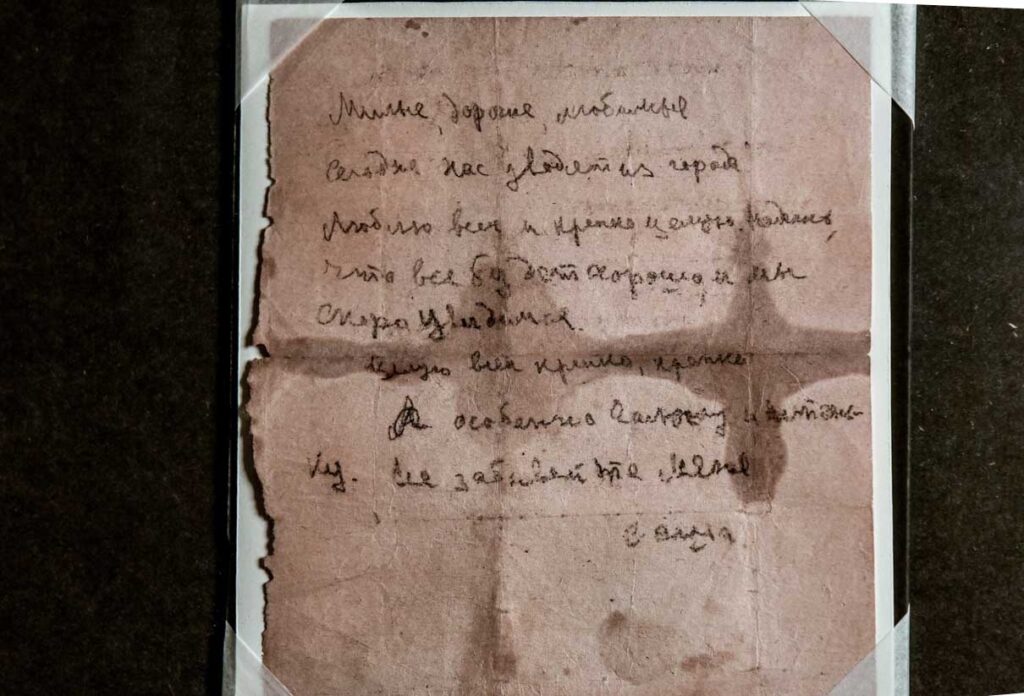 Милые, дорогие, любимые
Сегодня нас уводят из города
Люблю всех и крепко целую. Надеюсь,
что все будет хорошо, и мы
скоро увидимся.
Целую всех крепко, крепко
А особенно и
ку. Не забывайте меня